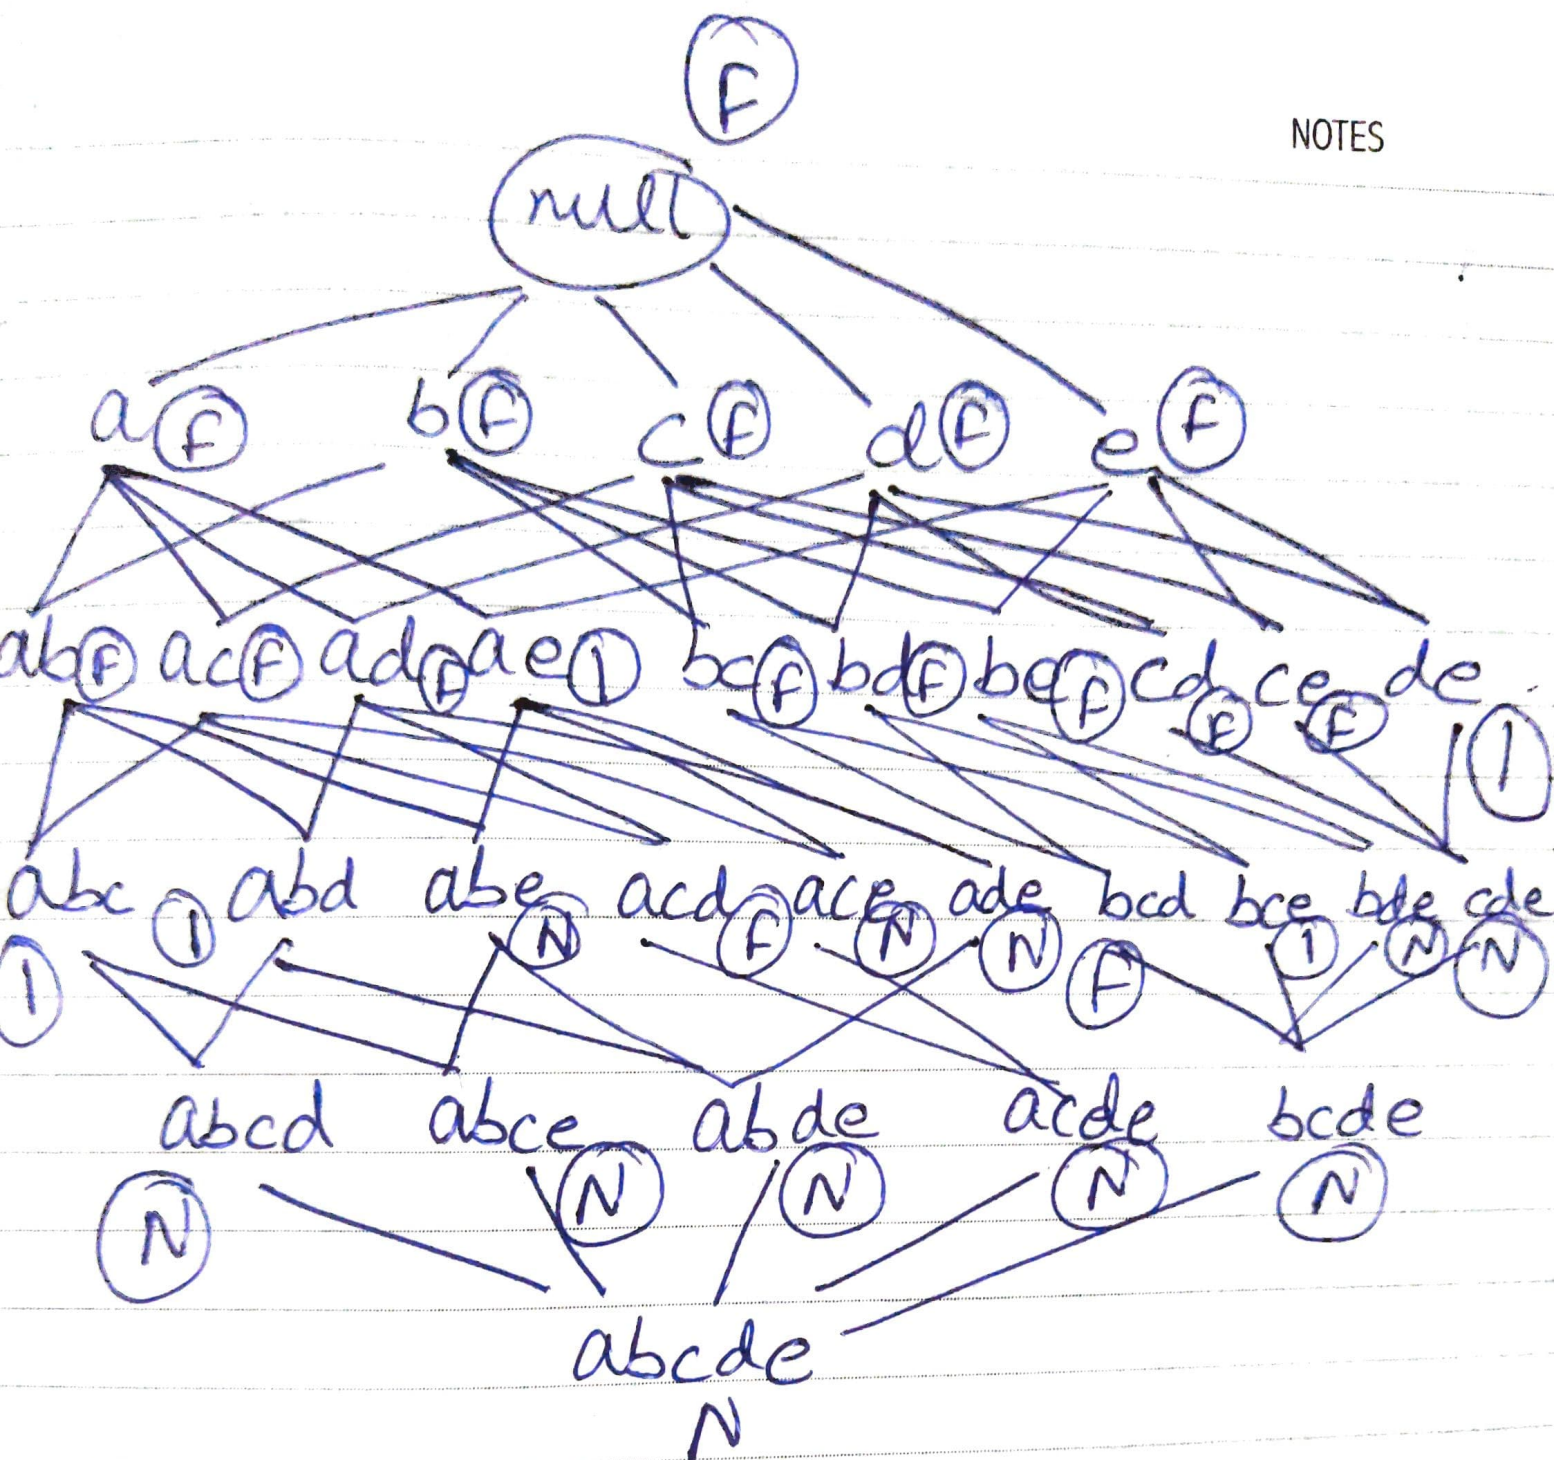 F
NOTES
null
a F b F c F d F e F
ab F ac F ad F ae I bc F bd F be F cd F ce F de I
abc I abd I abe N acd F ace N ade N bcd F bce I bde N cde N
abcd N abce N abde N acde N bcde N
abcde
N